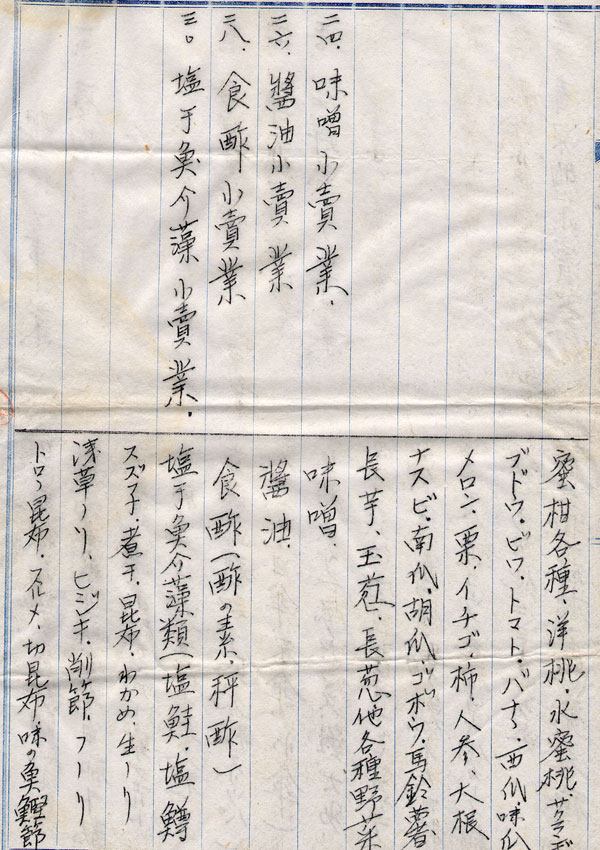 二四、味噌小賣業、
二六、醬油小賣業
二八、食酢小賣業
三〇、塩干魚介藻小賣業、
蜜柑各種、洋桃、水蜜桃
ブドウ、ビワ、トマト、バナナ、西瓜、味瓜
メロン、栗、イチゴ、柿、人参、大根
ナスビ、南瓜、胡瓜、ゴボウ、馬鈴薯
長芋、玉葱、長葱他各種野菜
味噌、
醬油、
食酢(酢の素、秤酢)
塩干魚介藻類(塩鮭、塩鱒
スズ子、煮干、昆布、わかめ、生ノリ
浅草ノリ、ヒジキ、削節、フノリ
トロロ昆布、スルメ、切昆布 味の魚 鰹節